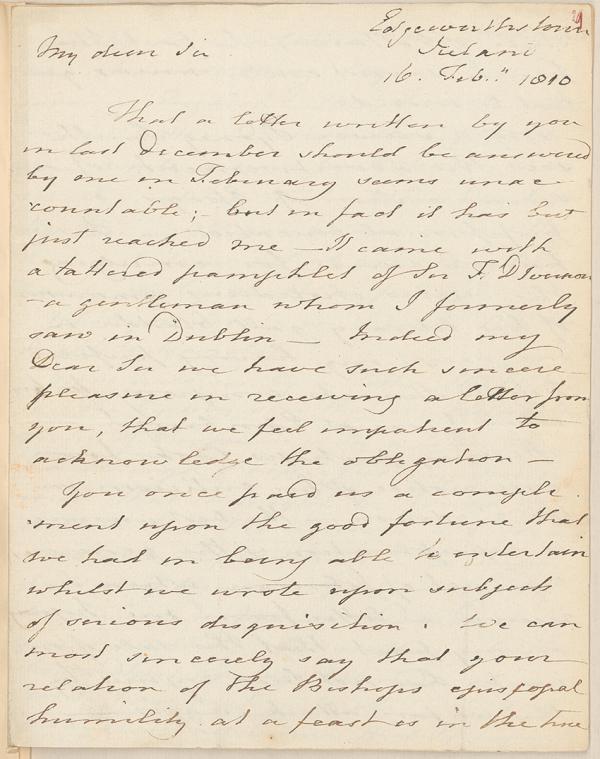 Edgeworthstown
Ireland
16. Feb.." 1810
My dear Sir
That a letter written by you
in last December should be answered
by me in February seems unac-
countable; - but in fact it has but
just reached me - It came with
a tattered pamphlet of Sir F. D'Ivernois
- a gentleman whom I formerly
saw in Dublin - Indeed my
Dear Sir we have such sincere
pleasure in receiving a letter from
you, that we feel impatient to
acknowledge the obligation -
You once paid us a compli
ment upon the good fortune that
we had in being able to entertain
whilst we wrote upon subjects
of serious disquisition. We can
most sincerely say that your
relation of the Bishops episcopal
humility at a feast is in the true